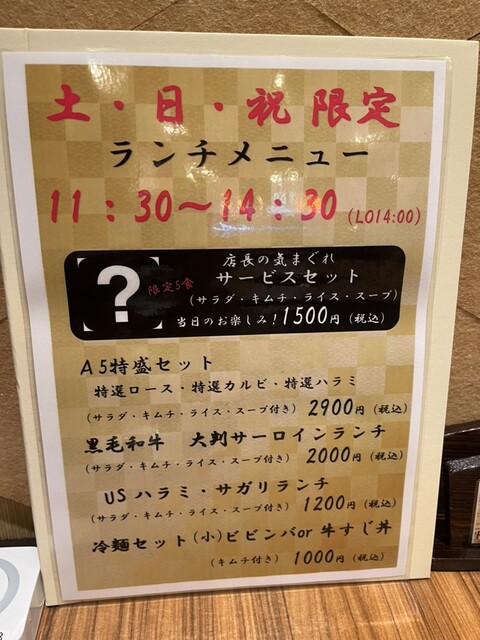 土・日・祝 限定
ランチメニュー
11：30～14：30 (LO14:00)
店長の気まぐれ
? 限定5食 サービスセット
(サラダ・キムチ・ライス・スープ)
当日のお楽しみ!1500円(税込)
A5特盛セット
特選ロース・特選カルビ・特選ハラミ
(サラダ・キムチ・ライス・スープ付き) 2900円(税込)
黒毛和牛 大判サーロインランチ
(サラダ・キムチ・ライス・スープ付き) 2000円(税込)
USハラミ・サガリランチ
(サラダ・キムチ・ライス・スープ付き) 1200円(税込)
冷麺セット(小)ビビンバor 牛すじ丼
(キムチ付き) 1000円(税込)